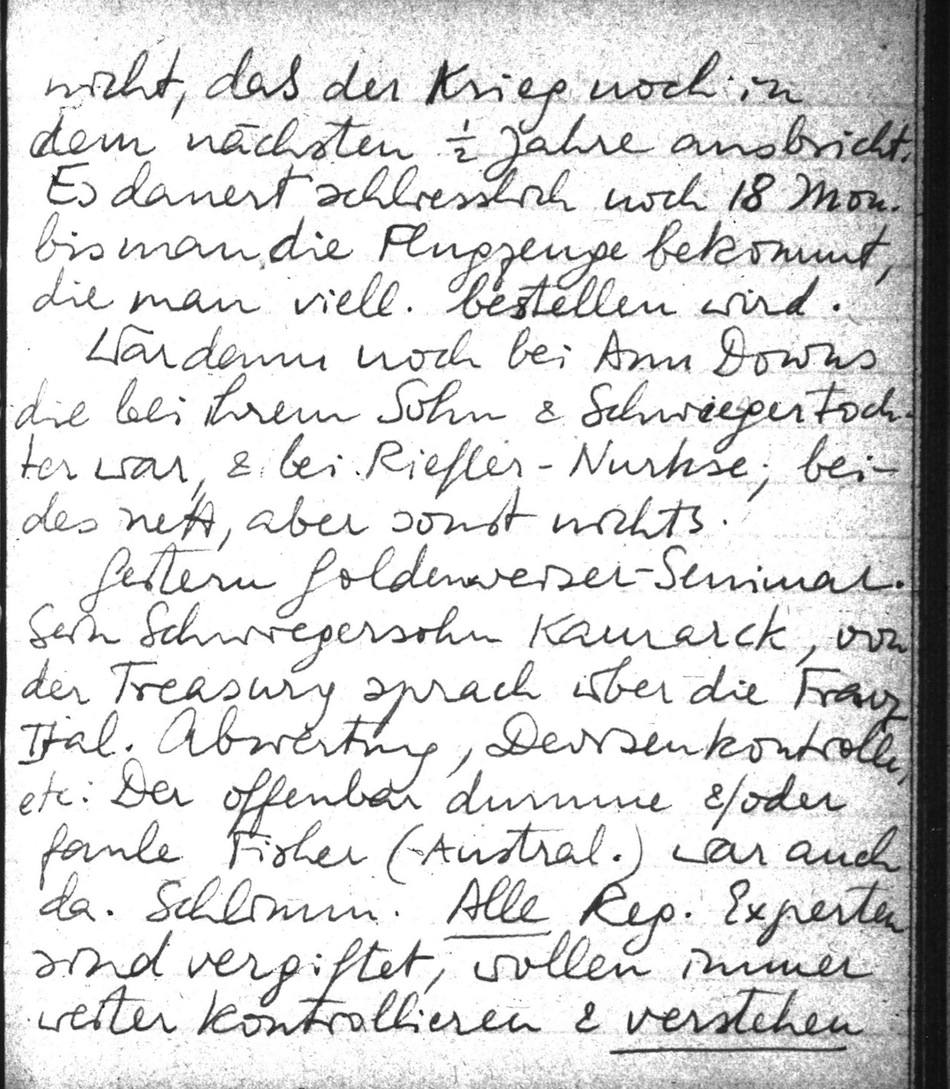 nicht, daß der Krieg noch in
dem nächsten ½ Jahre ausbricht.
Es dauert schliesslich noch 18 Mon.
bis man die Flugzeuge bekommt,
die man viell. bestellen wird.
War dann noch bei Ann Downs
die bei ihrem Sohn & Schwiegertoch-
ter war, & bei Riefler-Nurkse; bei-
des nett, aber sonst nichts.
Gestern Goldenweiser-Seminar.
Sein Schwiegersohn Kamarck, von
der Treasury sprach über die Franz
Ital. Abwertung, Devisenkontrolle,
etc. Der offenbar dumme &/oder
faule Fisher (Austral.) war auch
da. Schlimm. Alle Reg. Experten
sind vergiftet, wollen immer
weiter kontrollieren & verstehen